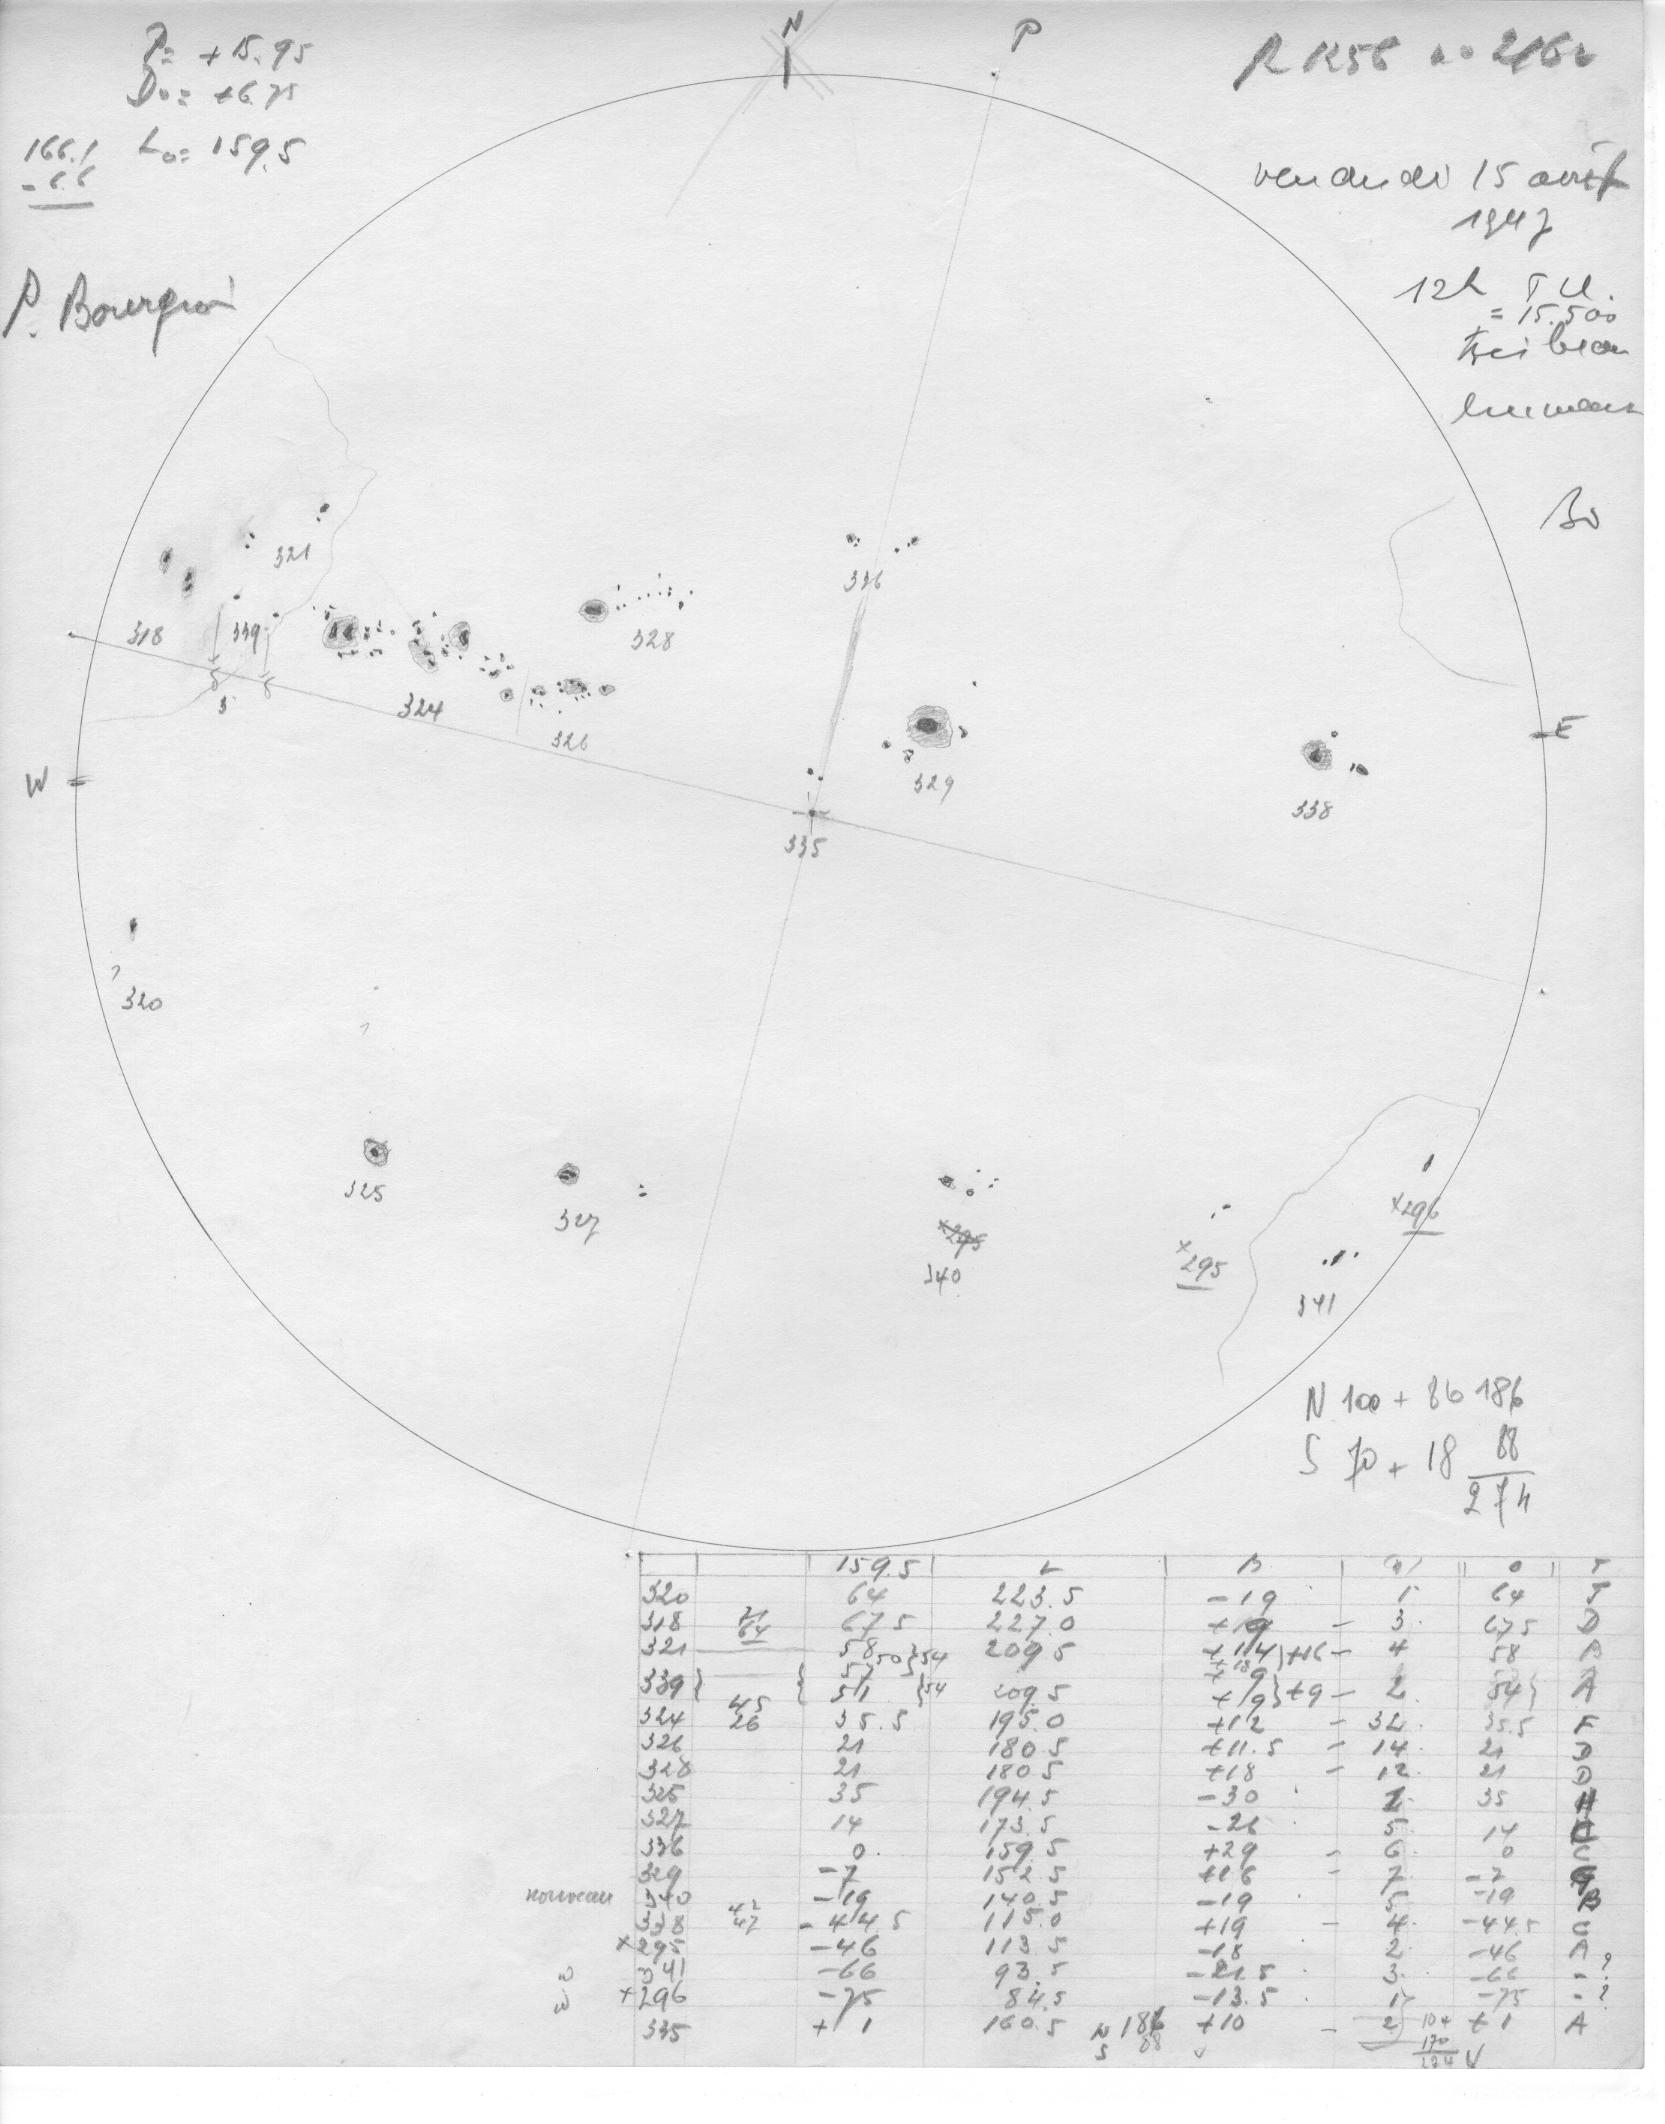 N
P
P = +15.95
D₀ = +6.75
L₀ = 159.5
166.1
- 6.6
R
vendredi 15 août
1947
12h T U.
= 15.500
P. Bourgui
Bo
321
336
318
339
328
5
324
326
W
E
329
338
335
?
320
325
327
x295
340
x295
x296
341
N 100 + 86 186
S 70 + 18 88
274
159.5 L B 0 T
320 64 223.5 -19 1 64 J
318 67.5 227.0 - 3 67.5 D
321 58 209.5 +16 - 4 58 B
339 } { 51 } 54 209.5 } +9 - 2 54 } A
324 45 26 35.5 195.0 +12 - 32 35.5 F
326 21 180.5 +11.5 - 14 21 D
328 21 180.5 +18 - 12 21 D
325 35 194.5 -30 35 H
327 14 173.5 -26 5 14
336 0 159.5 +29 - 6 0 C
329 -7 152.5 +16 - 7 -7 G
nouveau 340 -19 140.5 -19 5 -19 B
338 42 47 -44.5 115.0 +19 - 4 -44.5 C
x 295 -46 113.5 -18 2 -46 A
341 -66 93.5 -21.5 3 -66 - ?
x 296 -75 84.5 -13.5 1 -75 - ?
335 + 1 160.5 +10 - 2 +1 A
N 186
S 88
104
170
274